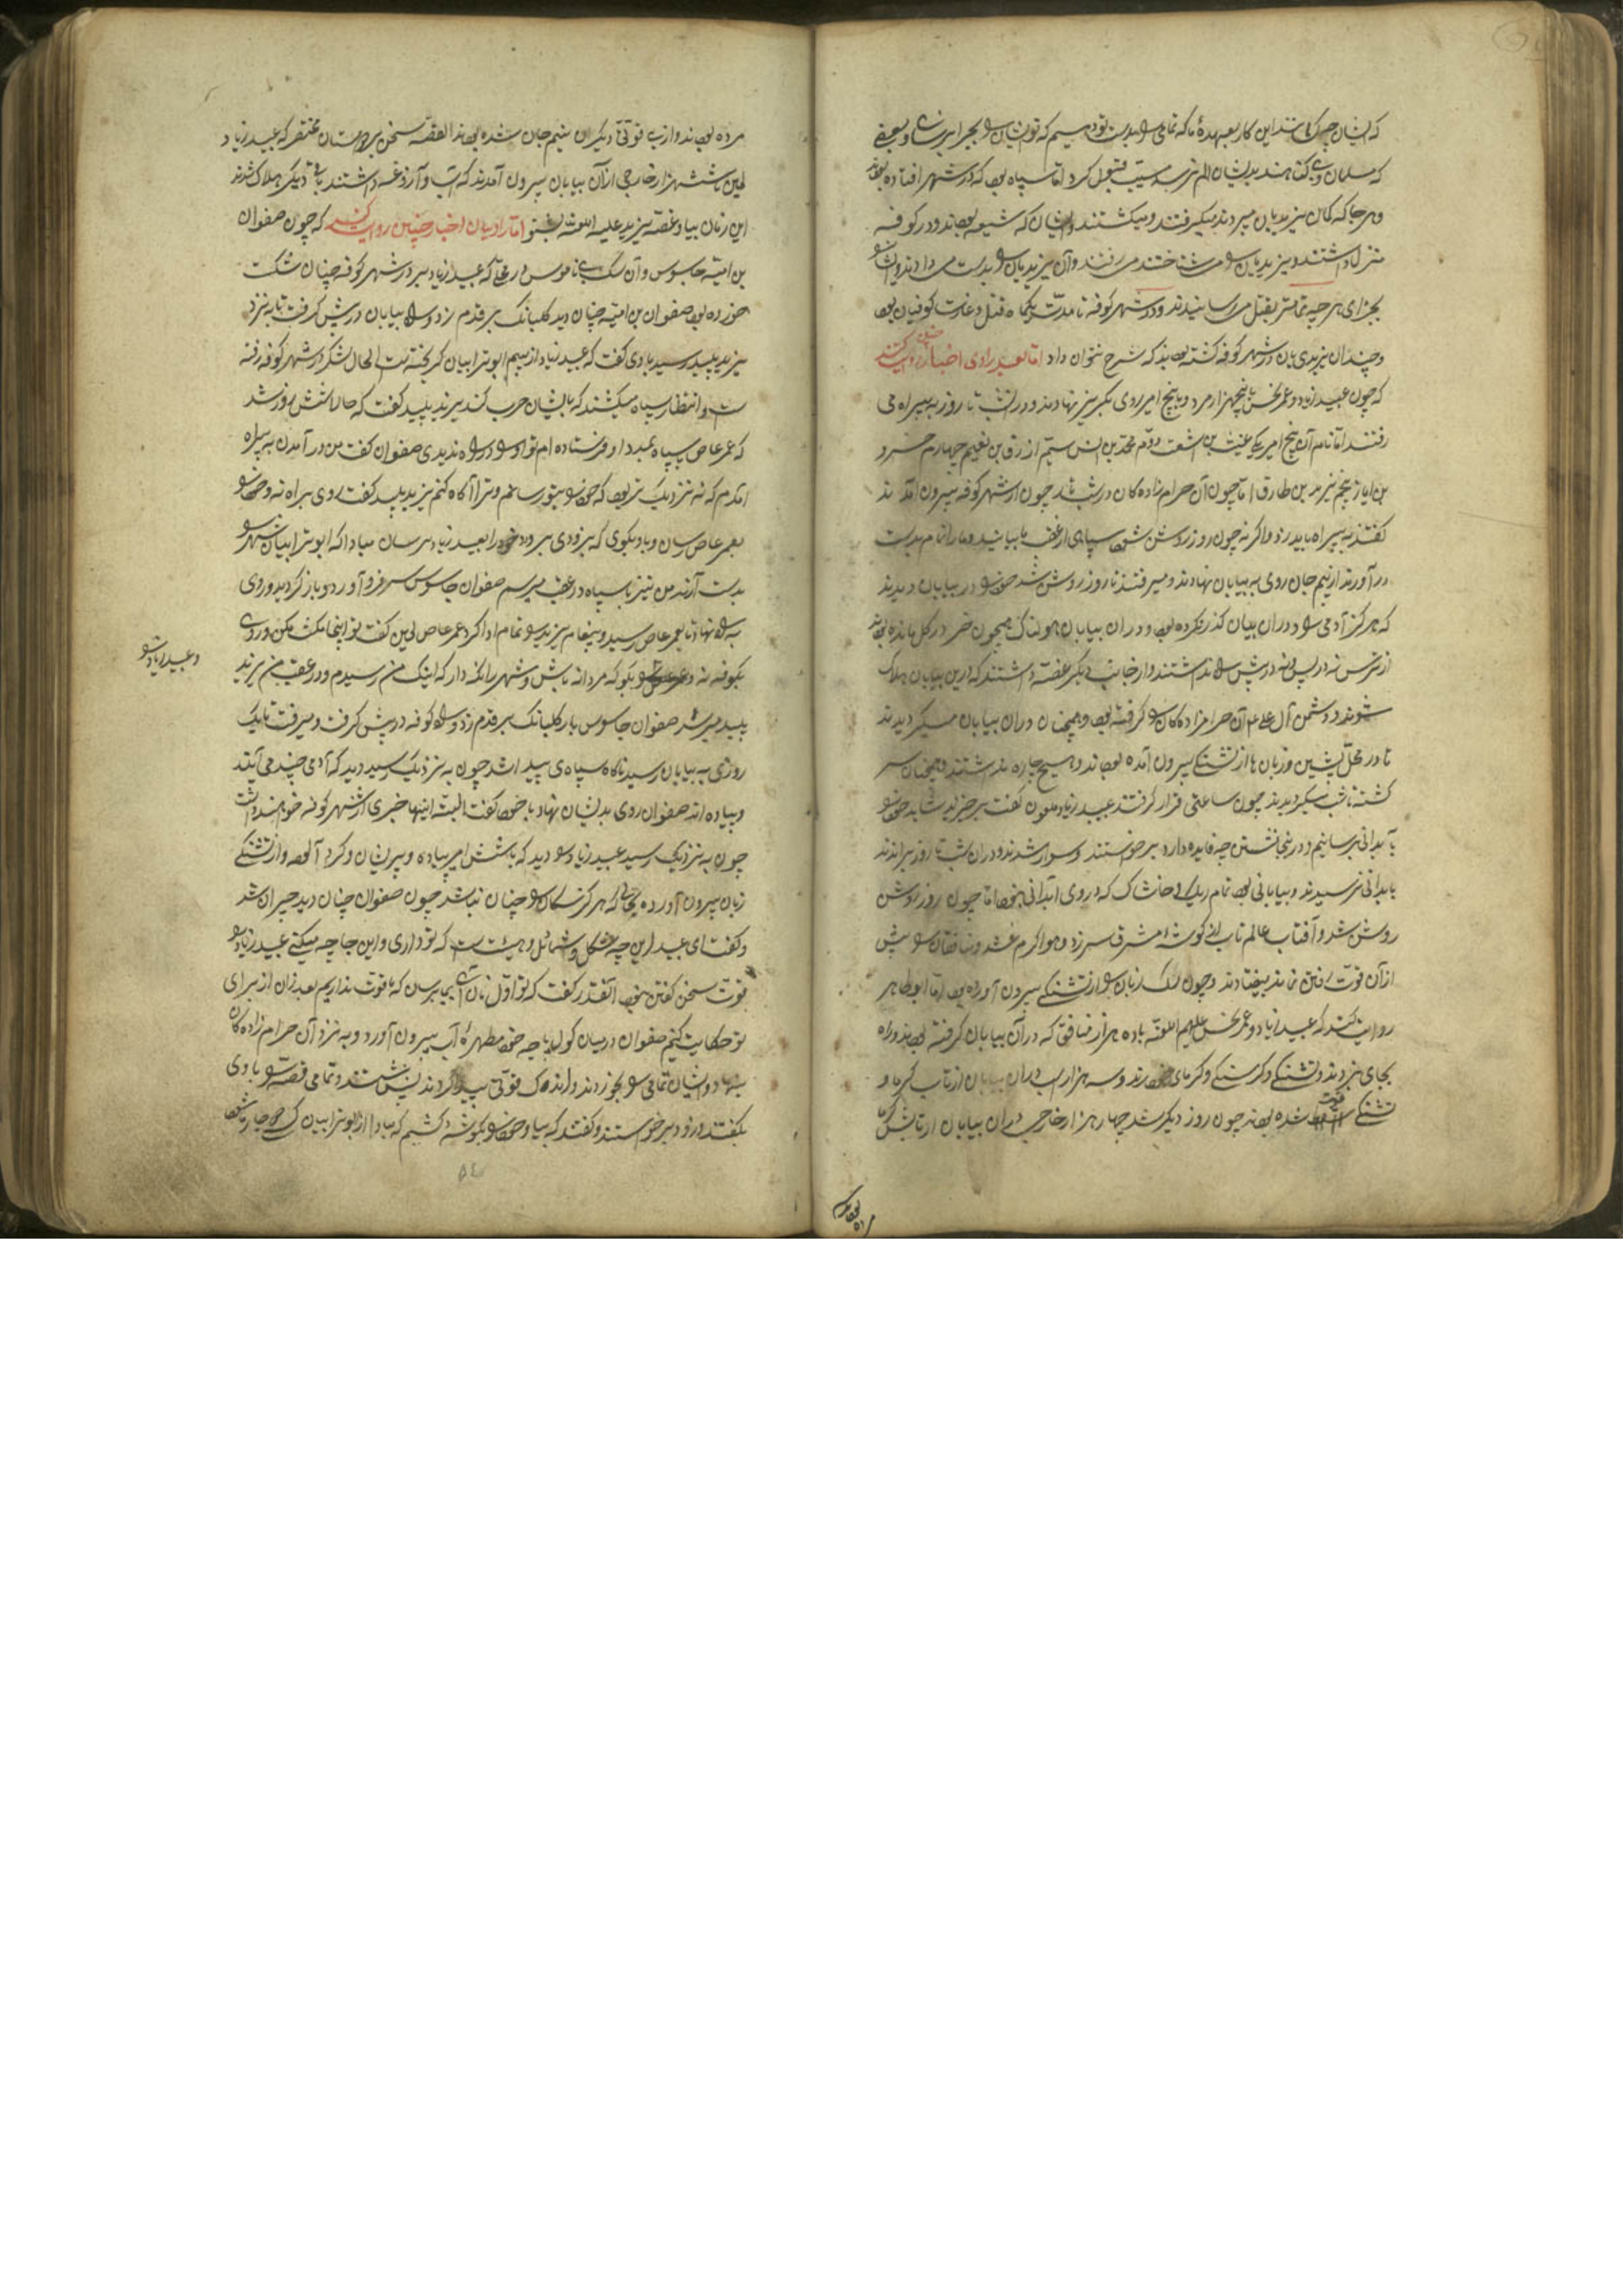 که ایشان چه کسانند این کار بعهدهٔ ما که تمامی را بدست تو دهیم که تو ایشان را بجزا برسانی و بعضی
که مسلمان و بی گناهند بدیشان الم نرسد مسیب قبول کرد اما سپاه بود که در شهر افتاده بودند
و هر جا که کسان یزیدیان میبردند میگرفتند و میکشتند و ایشان که شیعه بودند و در کوفه
منزل داشتند و یزیدیان را می شناختند می رفتند و آن یزیدیان را بدست می دادند و ایشان را
بجزای هر چه تمامتر بقتل می رسانیدند و در شهر کوفه تا مدت یکماه قتل و غارت کوفیان بود
و چندان یزیدی بان در شهر کوفه کشته بودند که شرح نتوان داد اما بعد راوی اخبار چنین روایت کند
که چون عبید زیاد و عمر نحس با پنجهزار مرد و با پنج امیر روی بگریز نهادند و در آن شب تا روز به بیراه می
رفتند اما نام آن پنج امیر یکی بن اشعث دوم محمد بن انس سیم ازرق بن نعیم چهارم خسرو
بن ایاز پنجم یزید بن طارق اما چون آن حرام زاده کان در شب تار چون از شهر کوفه بیرون آمدند
گفتند به بیراه باید رفت و اگر نه چون روز روشن شود سپاهی از عقب ما بیایند و ما را تمام بدست
در آورند از بیم جان روی به بیابان نهادند و میرفتند تا روز روشن شد خود را در بیابان دیدند
که هرگز آدمی را در آن بیابان گذر نکرده بود و در آن بیابان هولناک همچون خر در گل مانده بودند
از ترس نه در پس و نه در پیش راه نداشتند و از جانب دیگر غصه داشتند که در این بیابان هلاک
شوند و دشمن آل علی م آن حرامزاده کان را گرفته بود و همچنان در آن بیابان میگردیدند
تا در محل پیشین و زبان ها از تشنگی بیرون آمده بودند و هیچ چاره نداشتند و همچنان سر
گشته تا شب میگردیدند چون ساعتی قرار گرفتند عبید زیاد ملعون گفت برخیزید شاید خود را
بآبدانی برسانیم و در اینجا نشستن چه فایده دارد برخواستند و سوار شدند و در آن شب تا روز براندند
بآبدانی نرسیدند و بیابانی بود تمام ریگ بی خاشاک که در وی آبدانی نبود اما چون روز روشن
روشن شد و آفتاب عالم تاب از گوشهٔ مشرق سر زد و هوا گرم شد و منافقان را بیش
از آن قوت رفتن نماند بیفتادند و چون سگ زبان را از تشنگی بیرون آورده بود اما ابوطاهر
روایت کند که عبید زیاد و عمر نحس علیهم اللعنه با ده هزار منافق که در آن بیابان گرفته بودند و راه
بجای نبردند و تشنگی و گرسنگی و گرمای خوردند و سه هزار اسب در آن بیابان از تاب گرما و
تشنگی شده بودند چون روز دیگر شد چهار هزار خارجی در آن بیابان از تابش گرما
مرده بودند و از بی قوتی دیگران نیم جان شده بودند القصه سخن بر دوستان مختصر که عبید زیاد
لعین با شش هزار خارجی از آن بیابان بیرون آمدند که آب و آزوغه داشتند باقی دیگر هلاک شدند
این زمان بیا و غصه یزید علیه اللعنة بشنو اما راویان اخبار چنین روایت کنند که چون صفوان
بن امیه جاسوس و آن سگ بی ناموس در محلی که عبید زیاد در شهر کوفه چنان شکست
خورده بود صفوان بن امیه چنان دید گلبانگ بر قدم زد و راه بیابان در پیش گرفت تا به نزد
یزید پلید رسید با وی گفت که عبید زیاد از بیم ابوترابیان گریخته است الحال لشکر در شهر کوفه رفته
است و انتظار سپاه میکشند که با ایشان حرب کند یزید پلید گفت که حالا شش روز شد
که عمر عاص با سپاه بمدد او فرستاده ام تو او را در راه ندیدی صفوان گفت من در آمدن به بیراه
آمدم که نه نزدیک تر بود که خود را بتو رسانم و ترا آگاه کنم یزید پلید گفت روی براه نه و خود را
بعمر عاص رسان و با وی بگوی که بزودی برود و خود را بعبید زیاد برسان مبادا که ابوترابیان شهر را
بدست آرند من نیز با سپاه در عقب میرسم صفوان جاسوس سر فرو آورد و باز گردید و روی
براه نهاد تا بعمر عاص رسید و پیغام یزید را تمام ادا کرد عمر عاص لعین گفت تو اینجا مکث مکن و روی
بکوفه نه و بگو که مردانه باش و شهر را نگه دار که اینک من رسیدم و در عقب من یزید
و عبید زیاد را
پلید میرسد صفوان جاسوس بار گلبانگ بر قدم زد و راه کوفه در پیش گرفت و میرفت تا یک
روزی به بیابان رسید ناگاه سپاه ی پیدا شد چون به نزدیک رسید دید که آدمی چند می آیند
و پیاده اند صفوان روی بدیشان نهاد با خود گفت البته اینها خبری از شهر کوفه خواهند داشت
چون به نزدیک رسید عبید زیاد را دید که با شش امیر پیاده و پریشان و گرد آلود و از تشنگی
زبان بیرون آورده بحالی که هرگز سگان را چنان نباشد چون صفوان چنان دید حیران شد
و گفت ای عبید این چه شکل و شمایل و هیئت است که تو داری و این جا چه میکنی عبید زیاد را
قوت سخن گفتن نبود آنقدر گفت که تو اول نان آبی بما برسان که ما قوت نداریم بعد از آن از برای
تو حکایت کنیم صفوان در میان کوله باچه خود مطهرهٔ آب بیرون آورد و به نزد آن حرام زاده کان
بنهاد و ایشان تمامی را بخوردند و اندک قوتی پیدا کردند بنشستند و تمامی قصه را با وی
بگفتند و زود برخواستند و گفتند که بیا و خود را بگوشه کشیم که مبادا از ابوترابیان کسی دچار ما شود